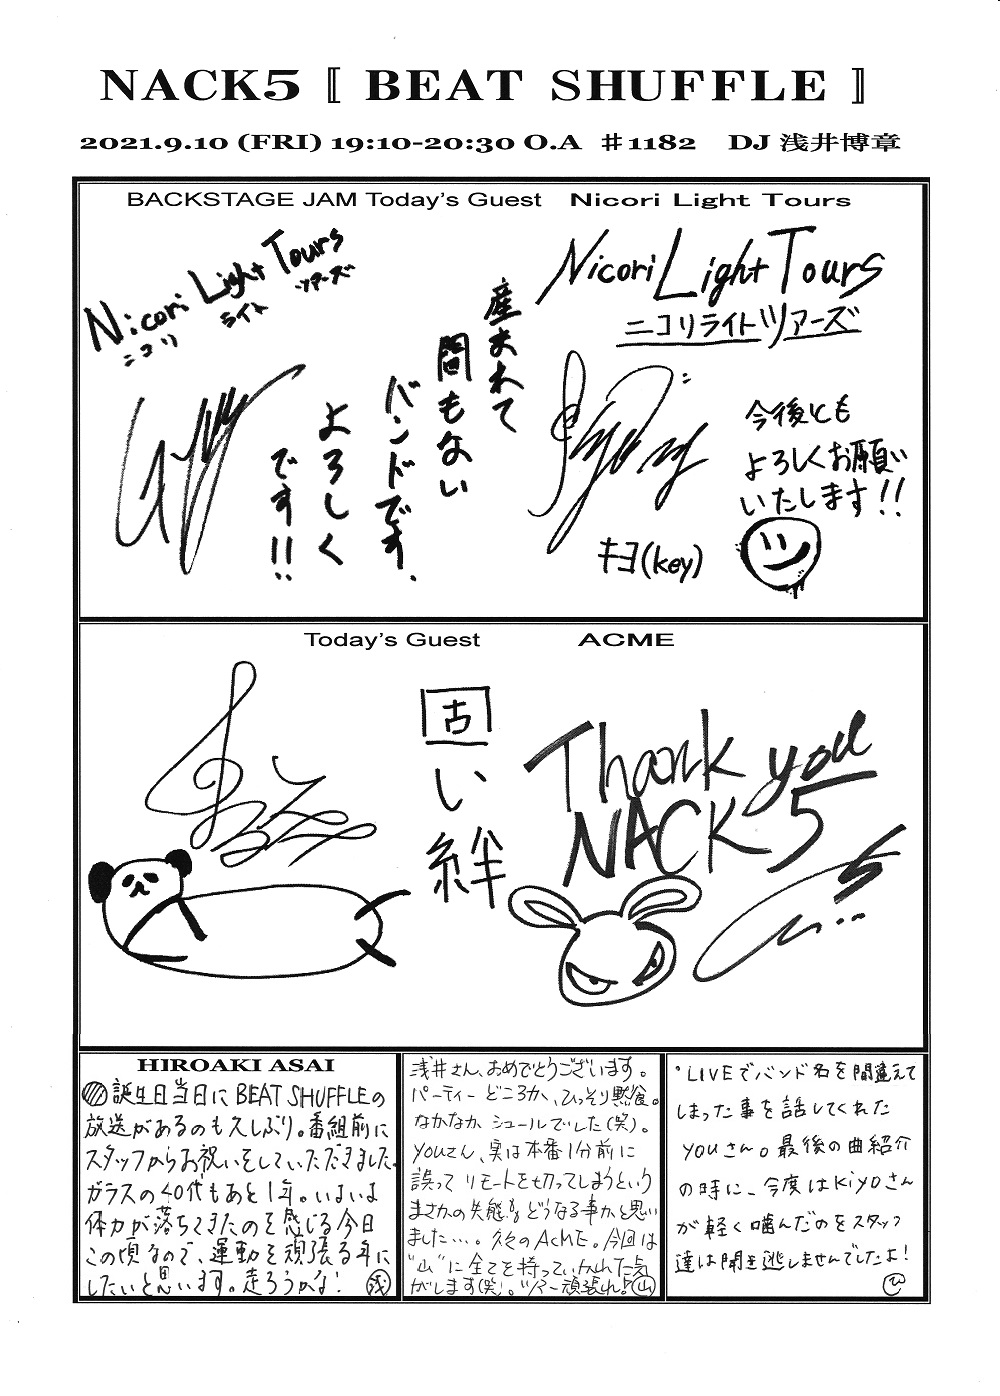 NACK5 〚 BEAT SHUFFLE 〛
2021.9.10 (FRI) 19:10-20:30 O.A ♯1182 DJ 浅井博章
BACKSTAGE JAM Today's Guest Nicori Light Tours
Nicori Light Tours
ニコリ ライト ツアーズ
産まれて
間もない
バンドです.
よろしく
です!!
Nicori Light Tours
ニコリライトツアーズ
キヨ(key)
今後とも
よろしくお願い
いたします!!
Today's Guest ACME
固い絆
Thank you
NACK5
HIROAKI ASAI
誕生日当日にBEAT SHUFFLEの
放送があるのも久しぶり。番組前に
スタッフからお祝いをしていただきました。
ガラスの40代もあと1年。いよいよ
体力が落ちてきたのを感じる今日
この頃なので、運動を頑張る年に
したいと思います。走ろうかな! 浅
浅井さん、おめでとうございます。
パーティーどころか、ひっそり黙食。
なかなかシュールでした(笑)。
youさん、実は本番1分前に
誤ってリモートを切ってしまうという
まさかの失態!どうなる事かと思い
ました…。久々のACME。今回は
"山"に全てを持っていかれた気
がします(笑)。ツアー頑張れ!(山)
・LIVEでバンド名を間違えて
しまった事を話してくれた
youさん。最後の曲紹介
の時に、今度はKiyoさん
が軽く噛んだのをスタッフ
達は聞き逃しませんでしたよ!
ひ